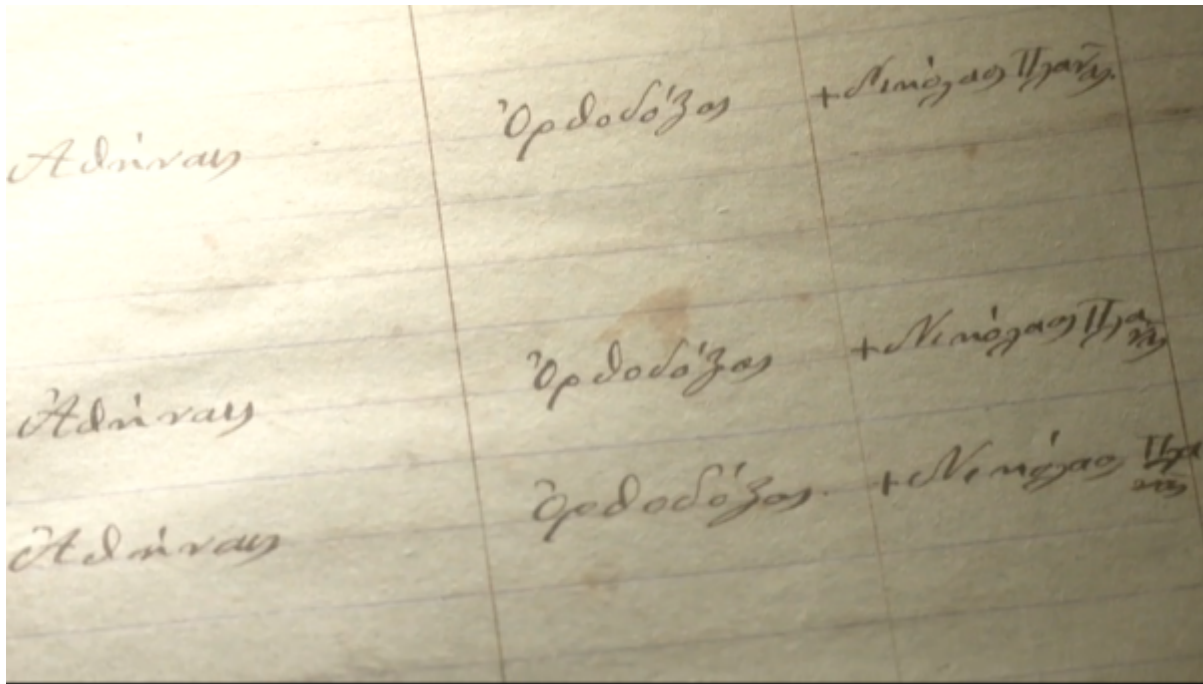 Ἀθήναις Ὀρθοδόξος +Νικόλαος Πλανᾶς.
Ἀθήναις Ὀρθοδόξος +Νικόλαος Πλα
νᾶς
Ἀθήναις Ὀρθοδόξος. +Νικόλαος Πλα
νᾶς